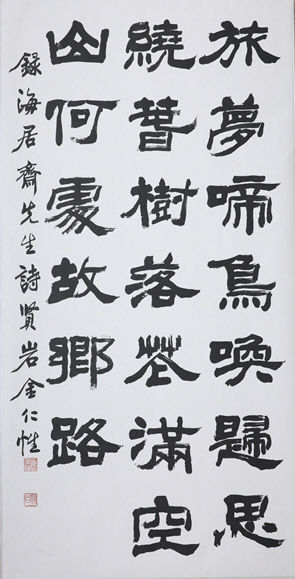 旅夢啼鳥喚歸思
繞春樹落花滿空
山何處故鄉路
錄海居齋先生詩賢岩金仁性